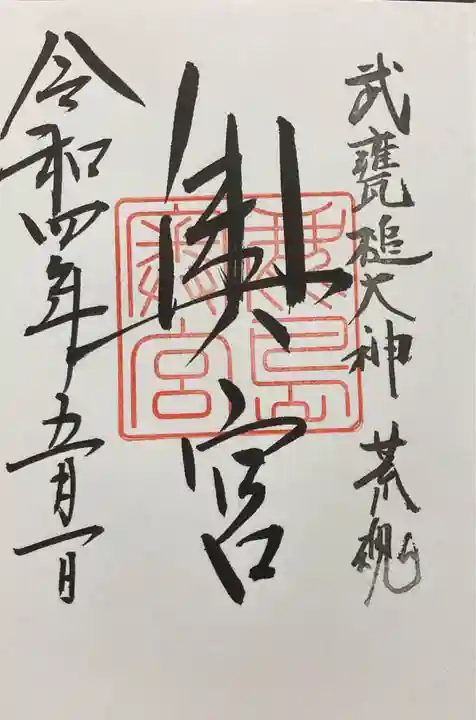 武甕槌大神 荒魂
奥宮
鹿島奥宮
令和四年五月一日